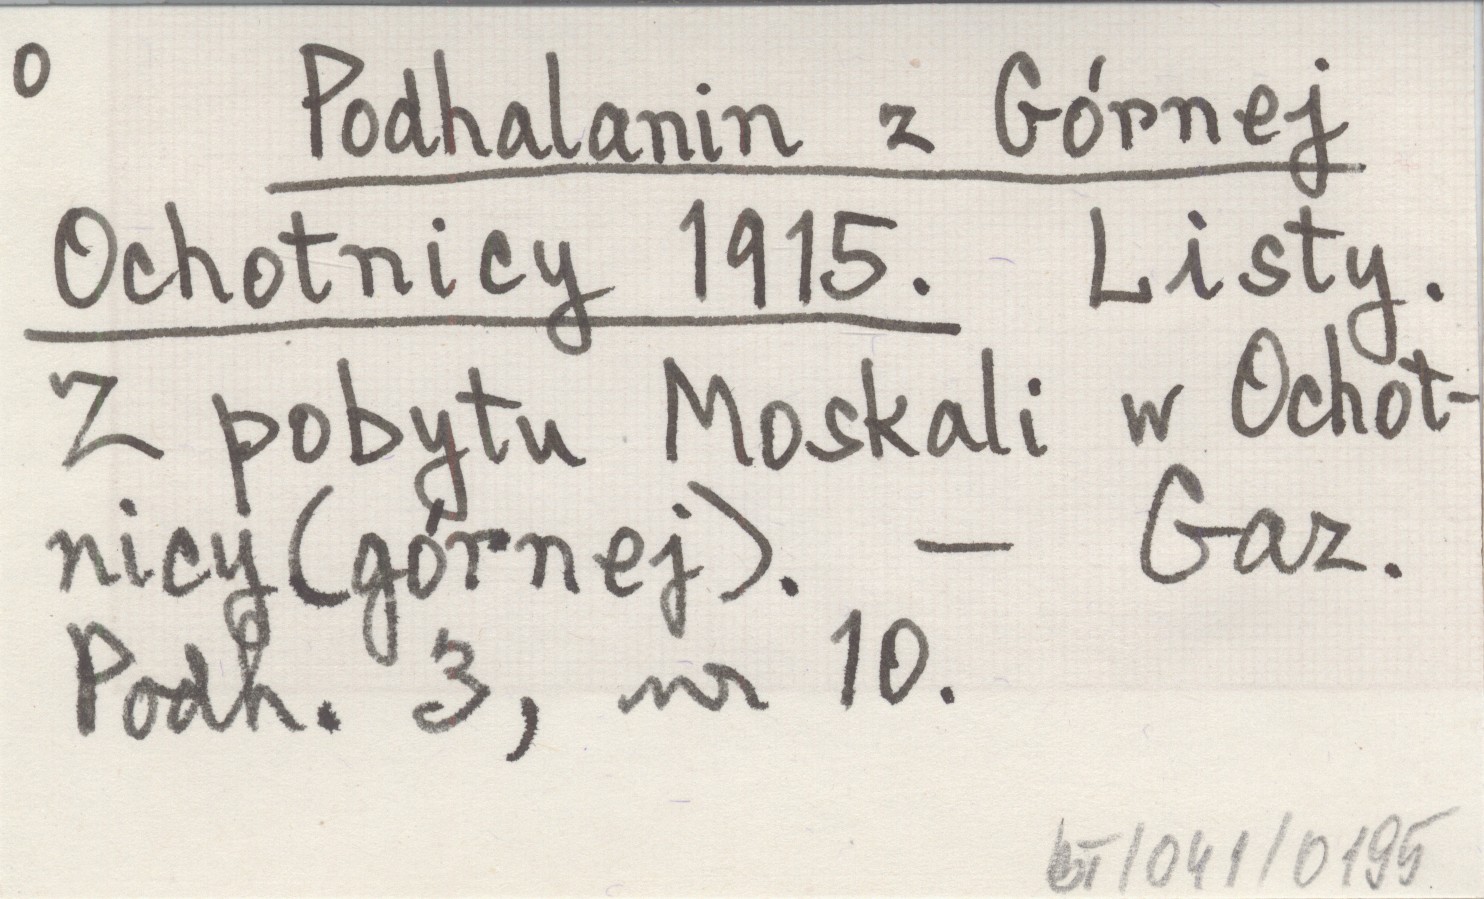 O
Podhalanin z Górnej
Ochotnicy 1915. Listy.
Z pobytu Moskali w Ochot-
nicy (górnej). — Gaz.
Podh. 3, nr 10.
/041/0195